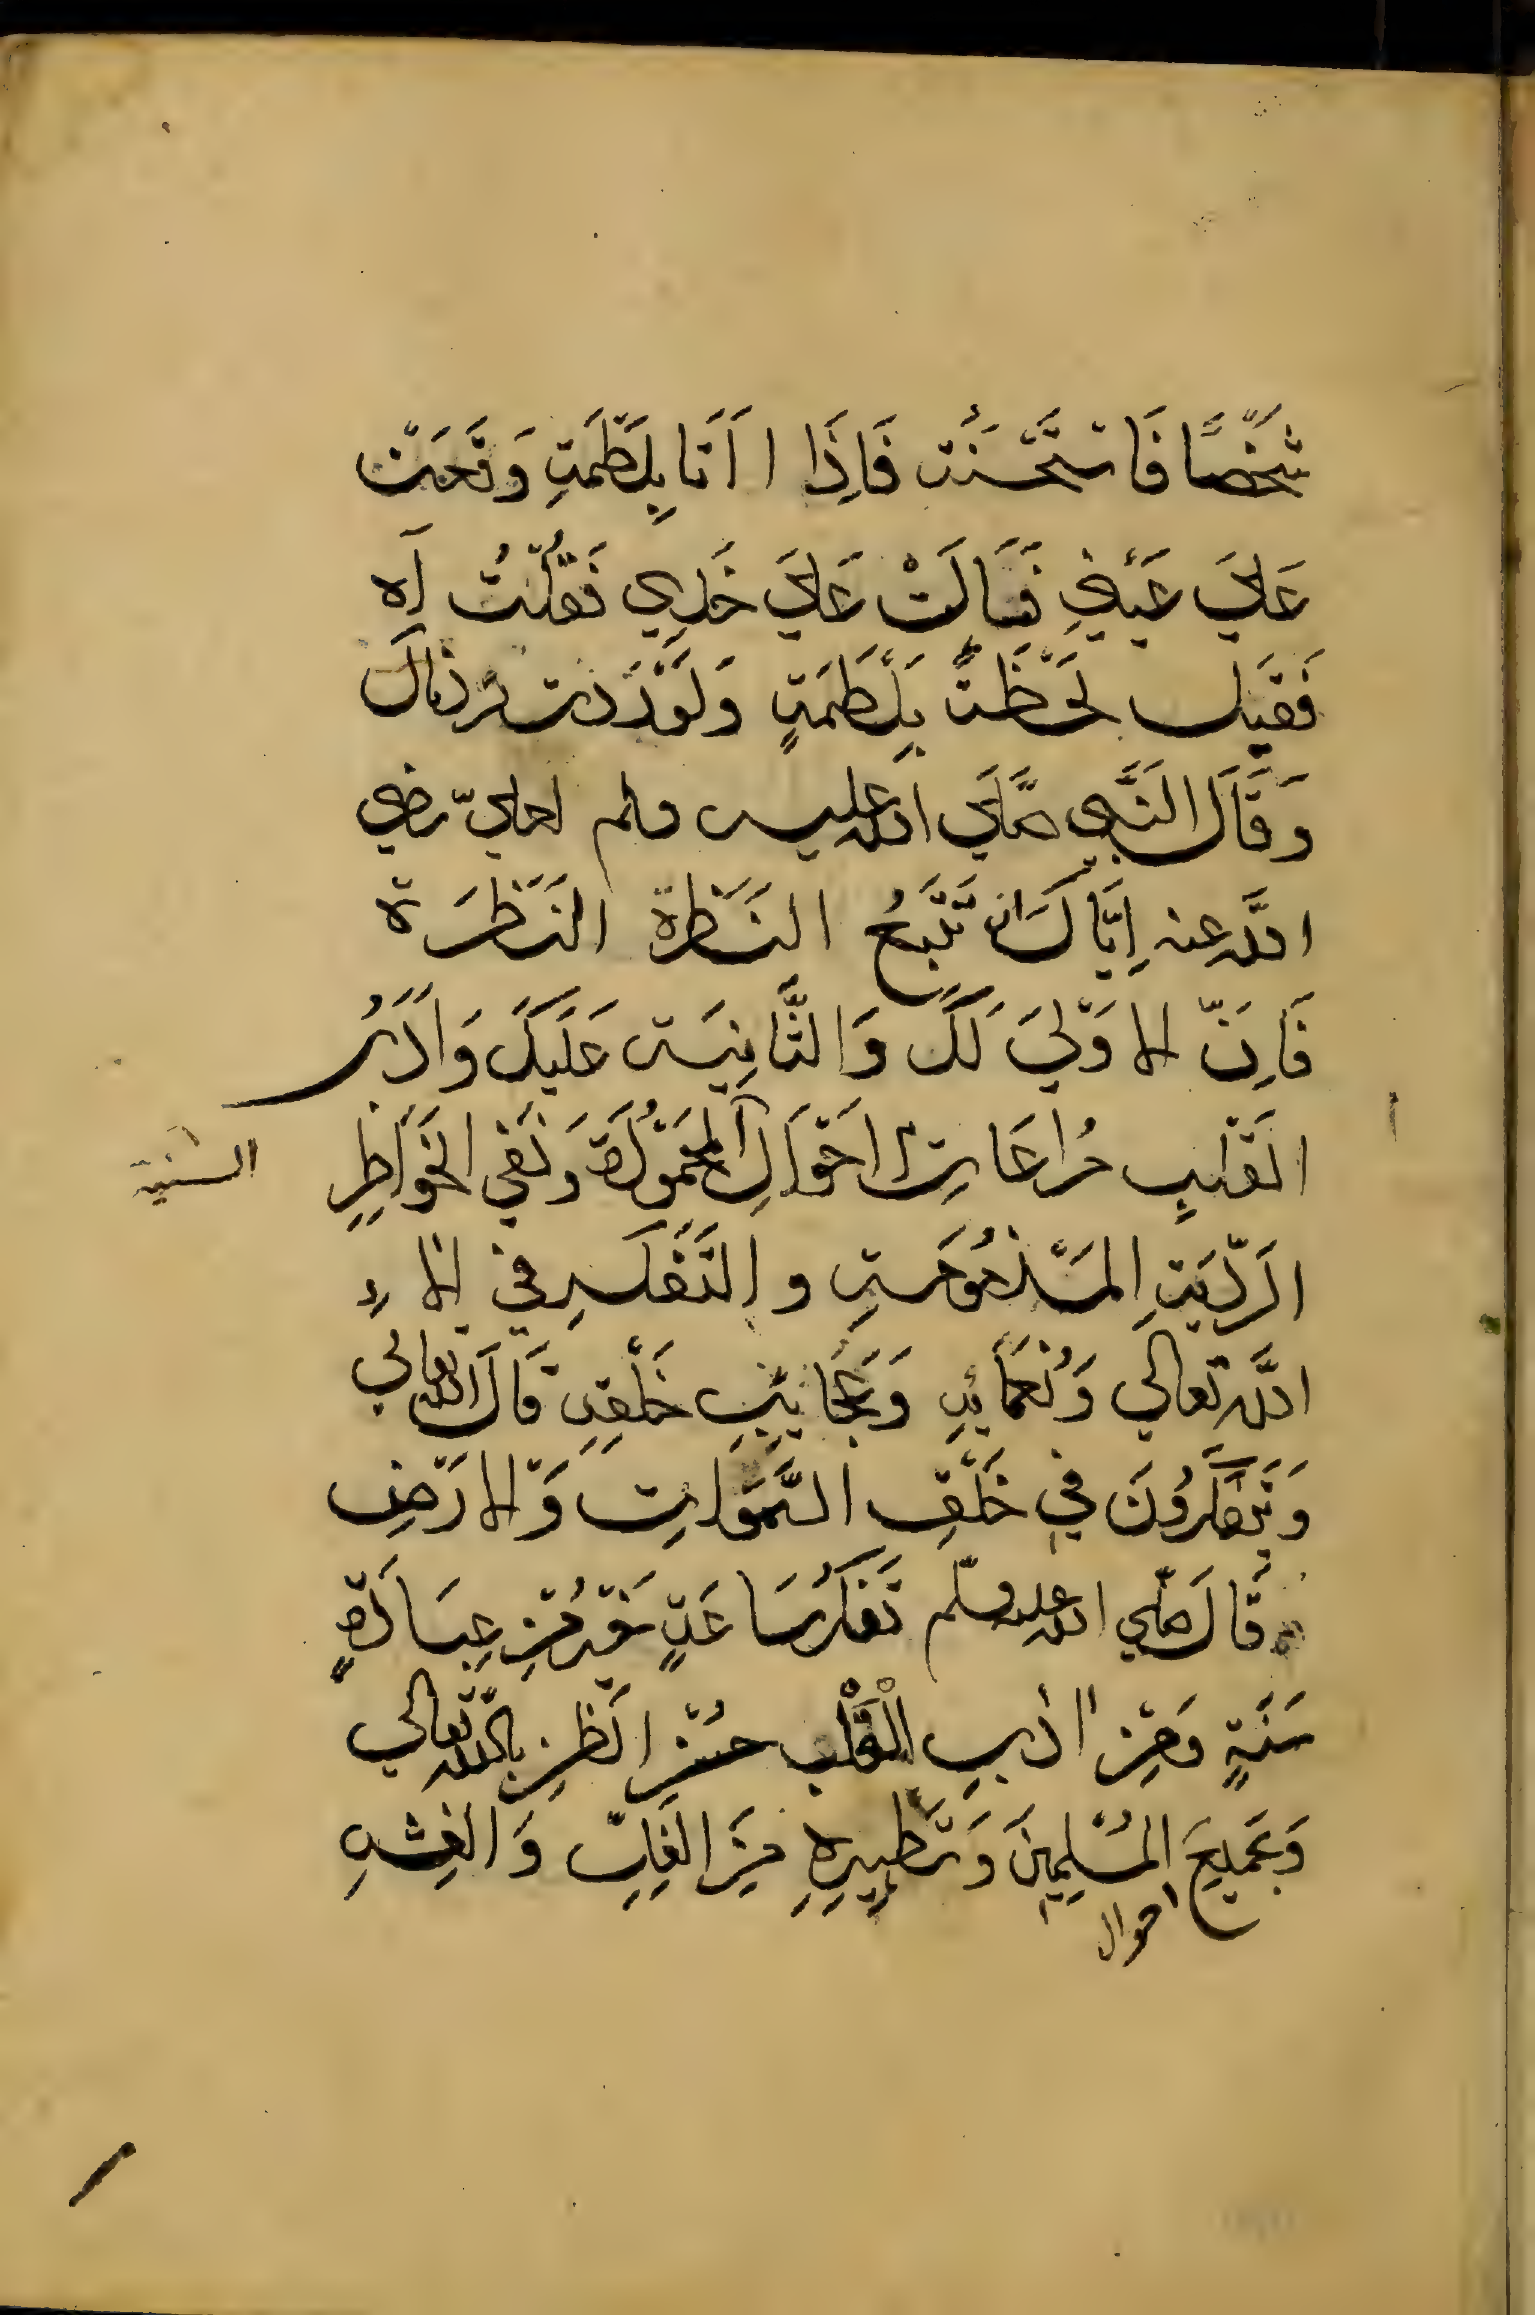 شَخْصًا فَاسْتَحْسَنَتْه فَاِذَا اَنَا بِلَطْمَةٍ وَقَعَتْ
عَلَيَ عَيْنِي فَسَالَتْ عَلَيَ خَدِي فَقُلْتُ آه
فَقِيلَ لَحْظَةً بِلَطْمَةٍ وَلَوْ زِدت زِدنَاكَ
وَقَالَ النَّبِي صَلَّي الله عليه وسلم لعليّ رضي
اللَّه عنه اِيَّاكَ ان تُتْبِعُ النَظْرة النَظْرَة
فَاِنَّ الاوْلَيَ لَكَ وَالثَّانِيَة عَلَيكَ وَاَدَبُ
القَلْبِ مُراعَاتِ الاحْوَالِ المَحْمُولَةِ وَنَفْي الخَوَاطِرِ
السنية
الرَدِيَةِ المَذْمُومَةِ و التَفَكُّرِ في الاءِ
اللَّه تعالي وَنَعْمَائِهِ وَعَجَايِبِ خَلْقِهِ قَالَ الله تعالي
وَيَتَفَكَّرُونَ فِي خَلْقِ السَّمَوَاتِ وَالارْضِ
قَالَ صَلّي الله عليه وسلّم تَفَكُّرُ سَاعَةٍ خَيْرٌ مِنْ عِبَادَةِ
سَنَةٍ وَمِنْ ادَبِ الْقَلْبِ حُسْنُ الظَنِ باللَّه تَعالي
وَبجَمِيعِ المُسْلِمِينَ وَتَطْهِيرِهِ مِنَ الغِلِّ وَالغِشِ
احوال